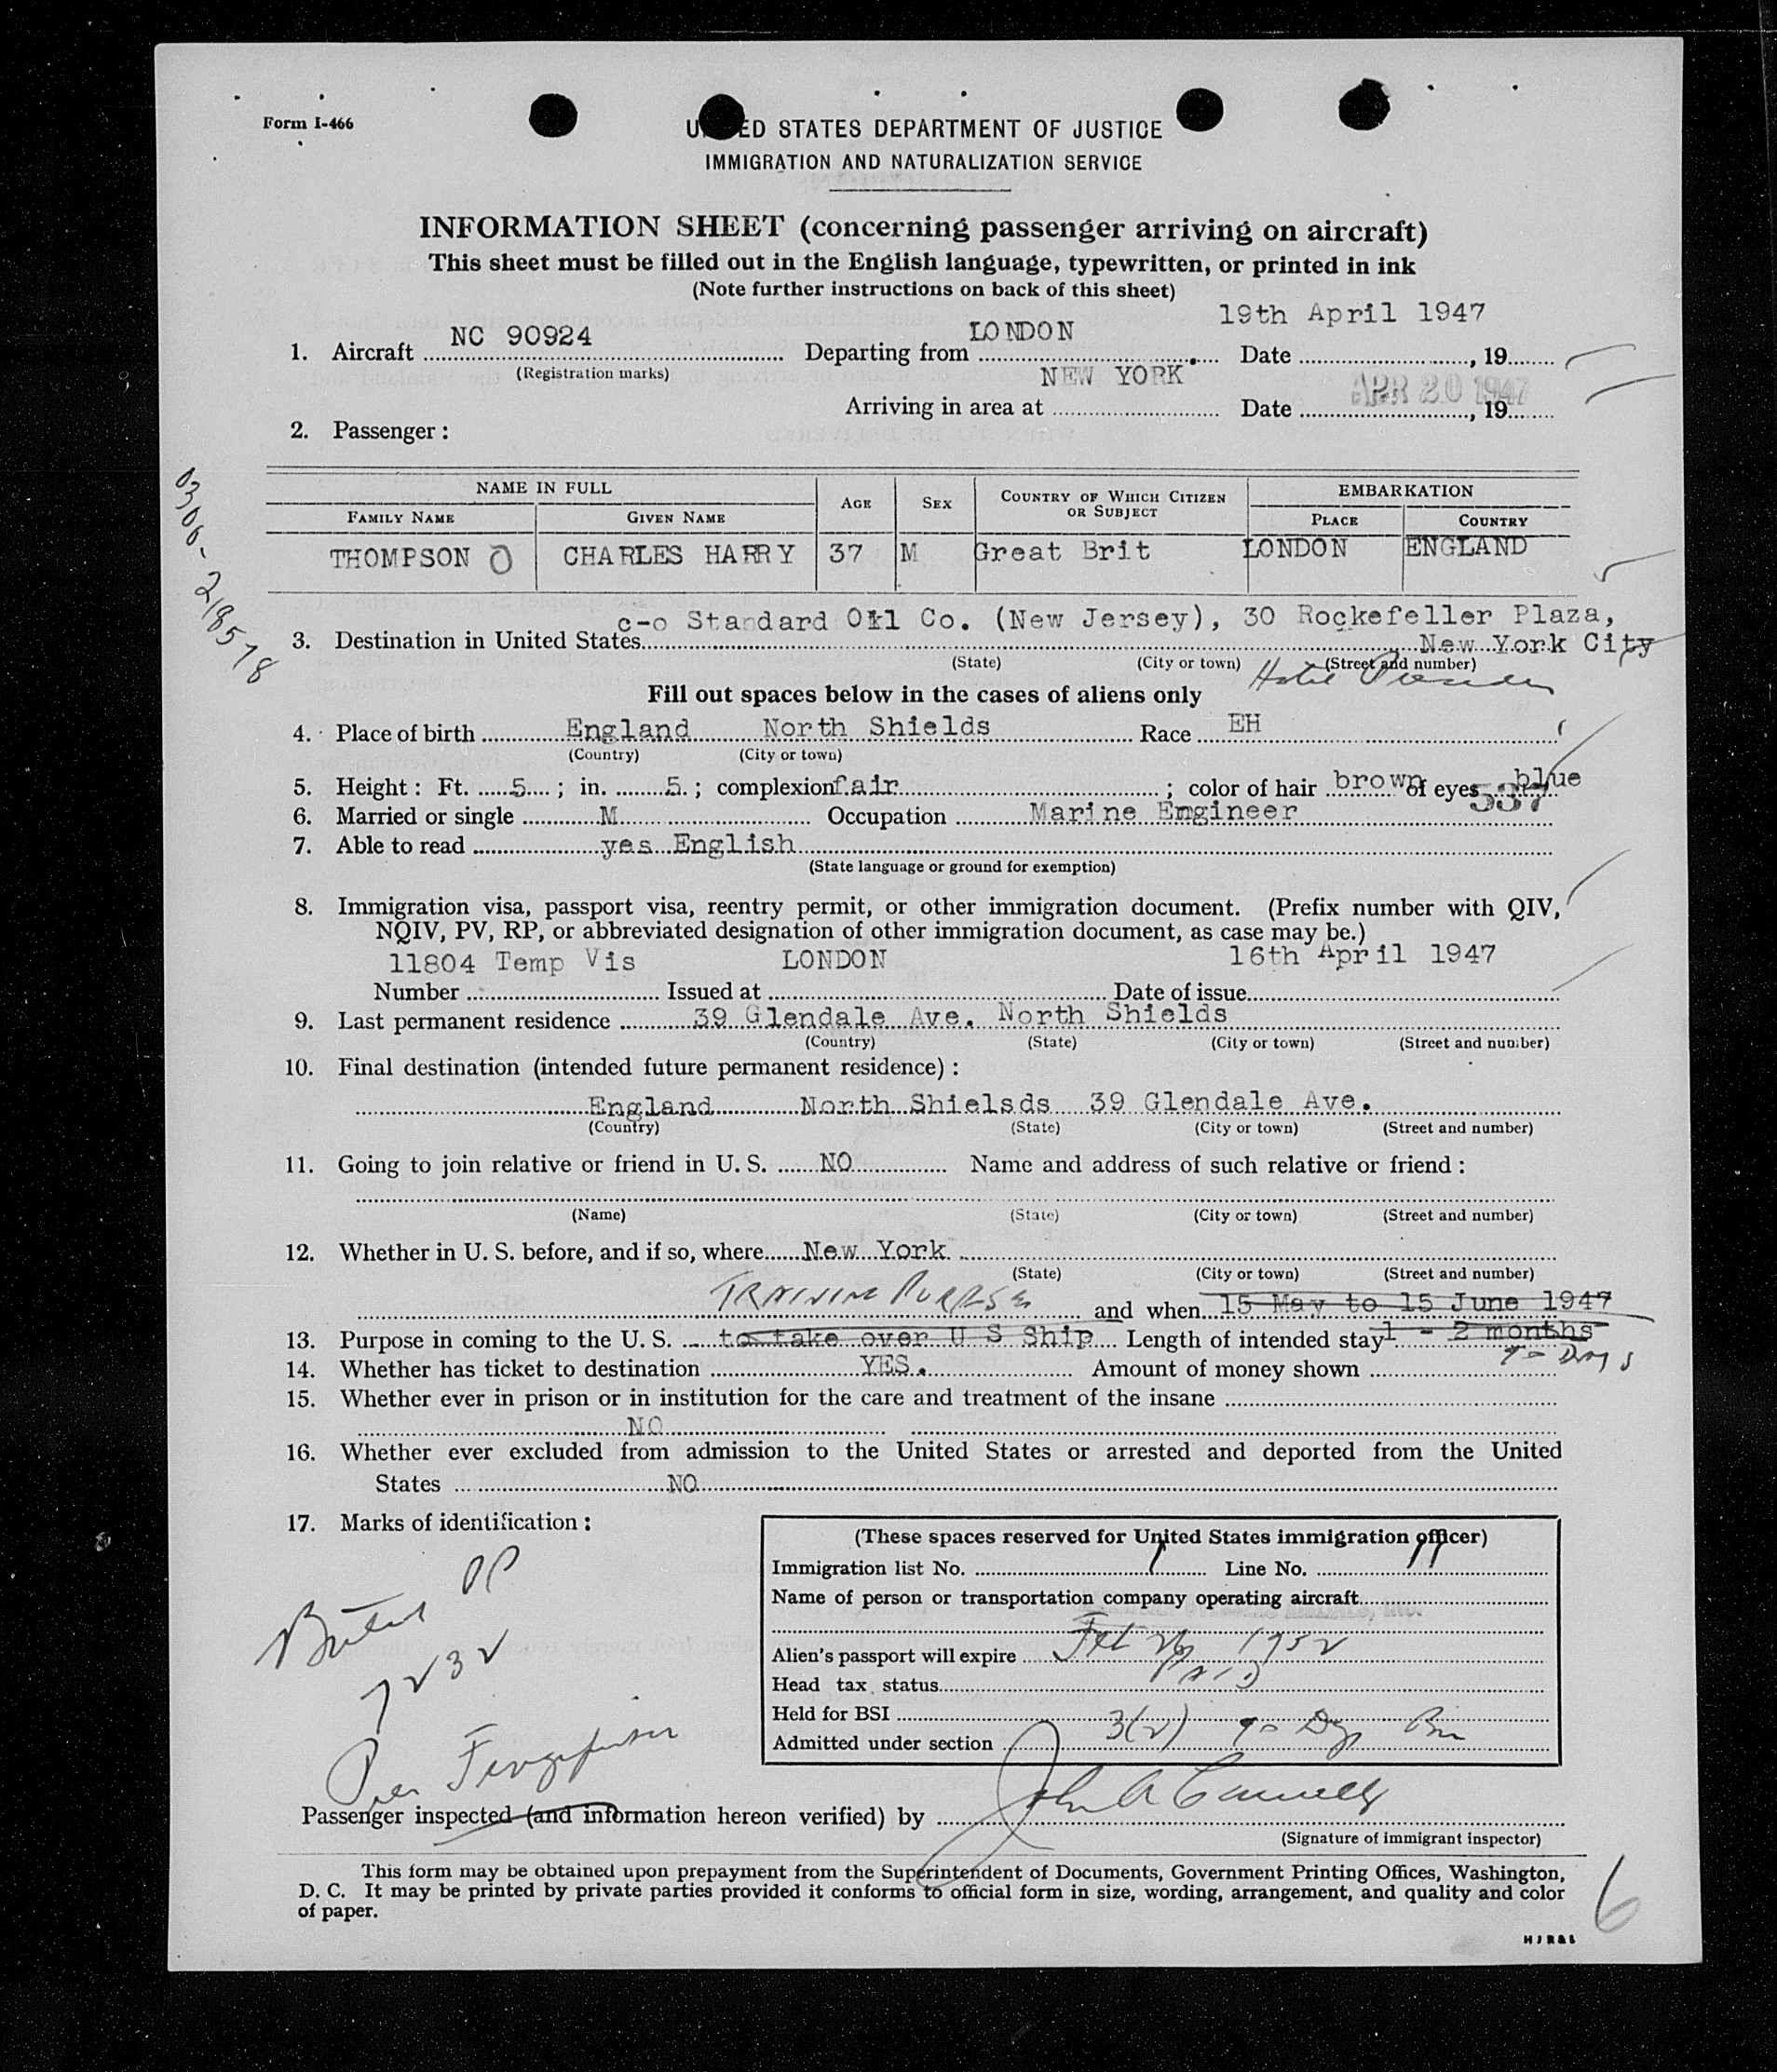 Form I-466
ED STATES DEPARTMENT OF JUSTICE
IMMIGRATION AND NATURALIZATION SERVICE
INFORMATION SHEET (concerning passenger arriving on aircraft)
This sheet must be filled out in the English language, typewritten, or printed in ink
(Note further instructions on back of this sheet)
1. Aircraft NC 90924 Departing from LONDON Date 19th April 1947, 19
(Registration marks)
Arriving in area at NEW YORK Date APR 20 1947, 19
2. Passenger:
NAME IN FULL AGE SEX COUNTRY OF WHICH CITIZEN OR SUBJECT EMBARKATION
FAMILY NAME GIVEN NAME PLACE COUNTRY
THOMPSON O CHARLES HARRY 37 M Great Brit LONDON ENGLAND
0300-218578
c-o Standard Oil Co. (New Jersey), 30 Rockefeller Plaza,
3. Destination in United States New York City
(State) (City or town) (Street and number)
Hotel
Fill out spaces below in the cases of aliens only
4. Place of birth England North Shields Race EH
(Country) (City or town)
5. Height: Ft. 5; in. 5; complexion fair; color of hair brown of eyes blue
537
6. Married or single M Occupation Marine Emgineer
7. Able to read yes English
(State language or ground for exemption)
8. Immigration visa, passport visa, reentry permit, or other immigration document. (Prefix number with QIV,
NQIV, PV, RP, or abbreviated designation of other immigration document, as case may be.)
Number 11804 Temp Vis Issued at LONDON Date of issue 16th April 1947
9. Last permanent residence 39 Glendale Ave. North Shields
(Country) (State) (City or town) (Street and number)
10. Final destination (intended future permanent residence):
England North Shielsds 39 Glendale Ave.
(Country) (State) (City or town) (Street and number)
11. Going to join relative or friend in U. S. NO Name and address of such relative or friend:
(Name) (State) (City or town) (Street and number)
12. Whether in U. S. before, and if so, where New York
(State) (City or town) (Street and number)
TRAINING PURPOSES and when 15 May to 15 June 1947
13. Purpose in coming to the U. S. to take over U S Ship Length of intended stay 1 - 2 months
90 Days
14. Whether has ticket to destination YES. Amount of money shown
15. Whether ever in prison or in institution for the care and treatment of the insane
NO
16. Whether ever excluded from admission to the United States or arrested and deported from the United
States NO
17. Marks of identification:
British PP
7232
(These spaces reserved for United States immigration officer)
Immigration list No. 1 Line No. 11
Name of person or transportation company operating aircraft
Alien's passport will expire Feb 26 1952
Head tax status PAID
Held for BSI
Admitted under section 3(2) 90 Days
Passenger inspected (and information hereon verified) by John A
(Signature of immigrant inspector)
This form may be obtained upon prepayment from the Superintendent of Documents, Government Printing Offices, Washington,
D. C. It may be printed by private parties provided it conforms to official form in size, wording, arrangement, and quality and color
of paper.
6
HJR&L